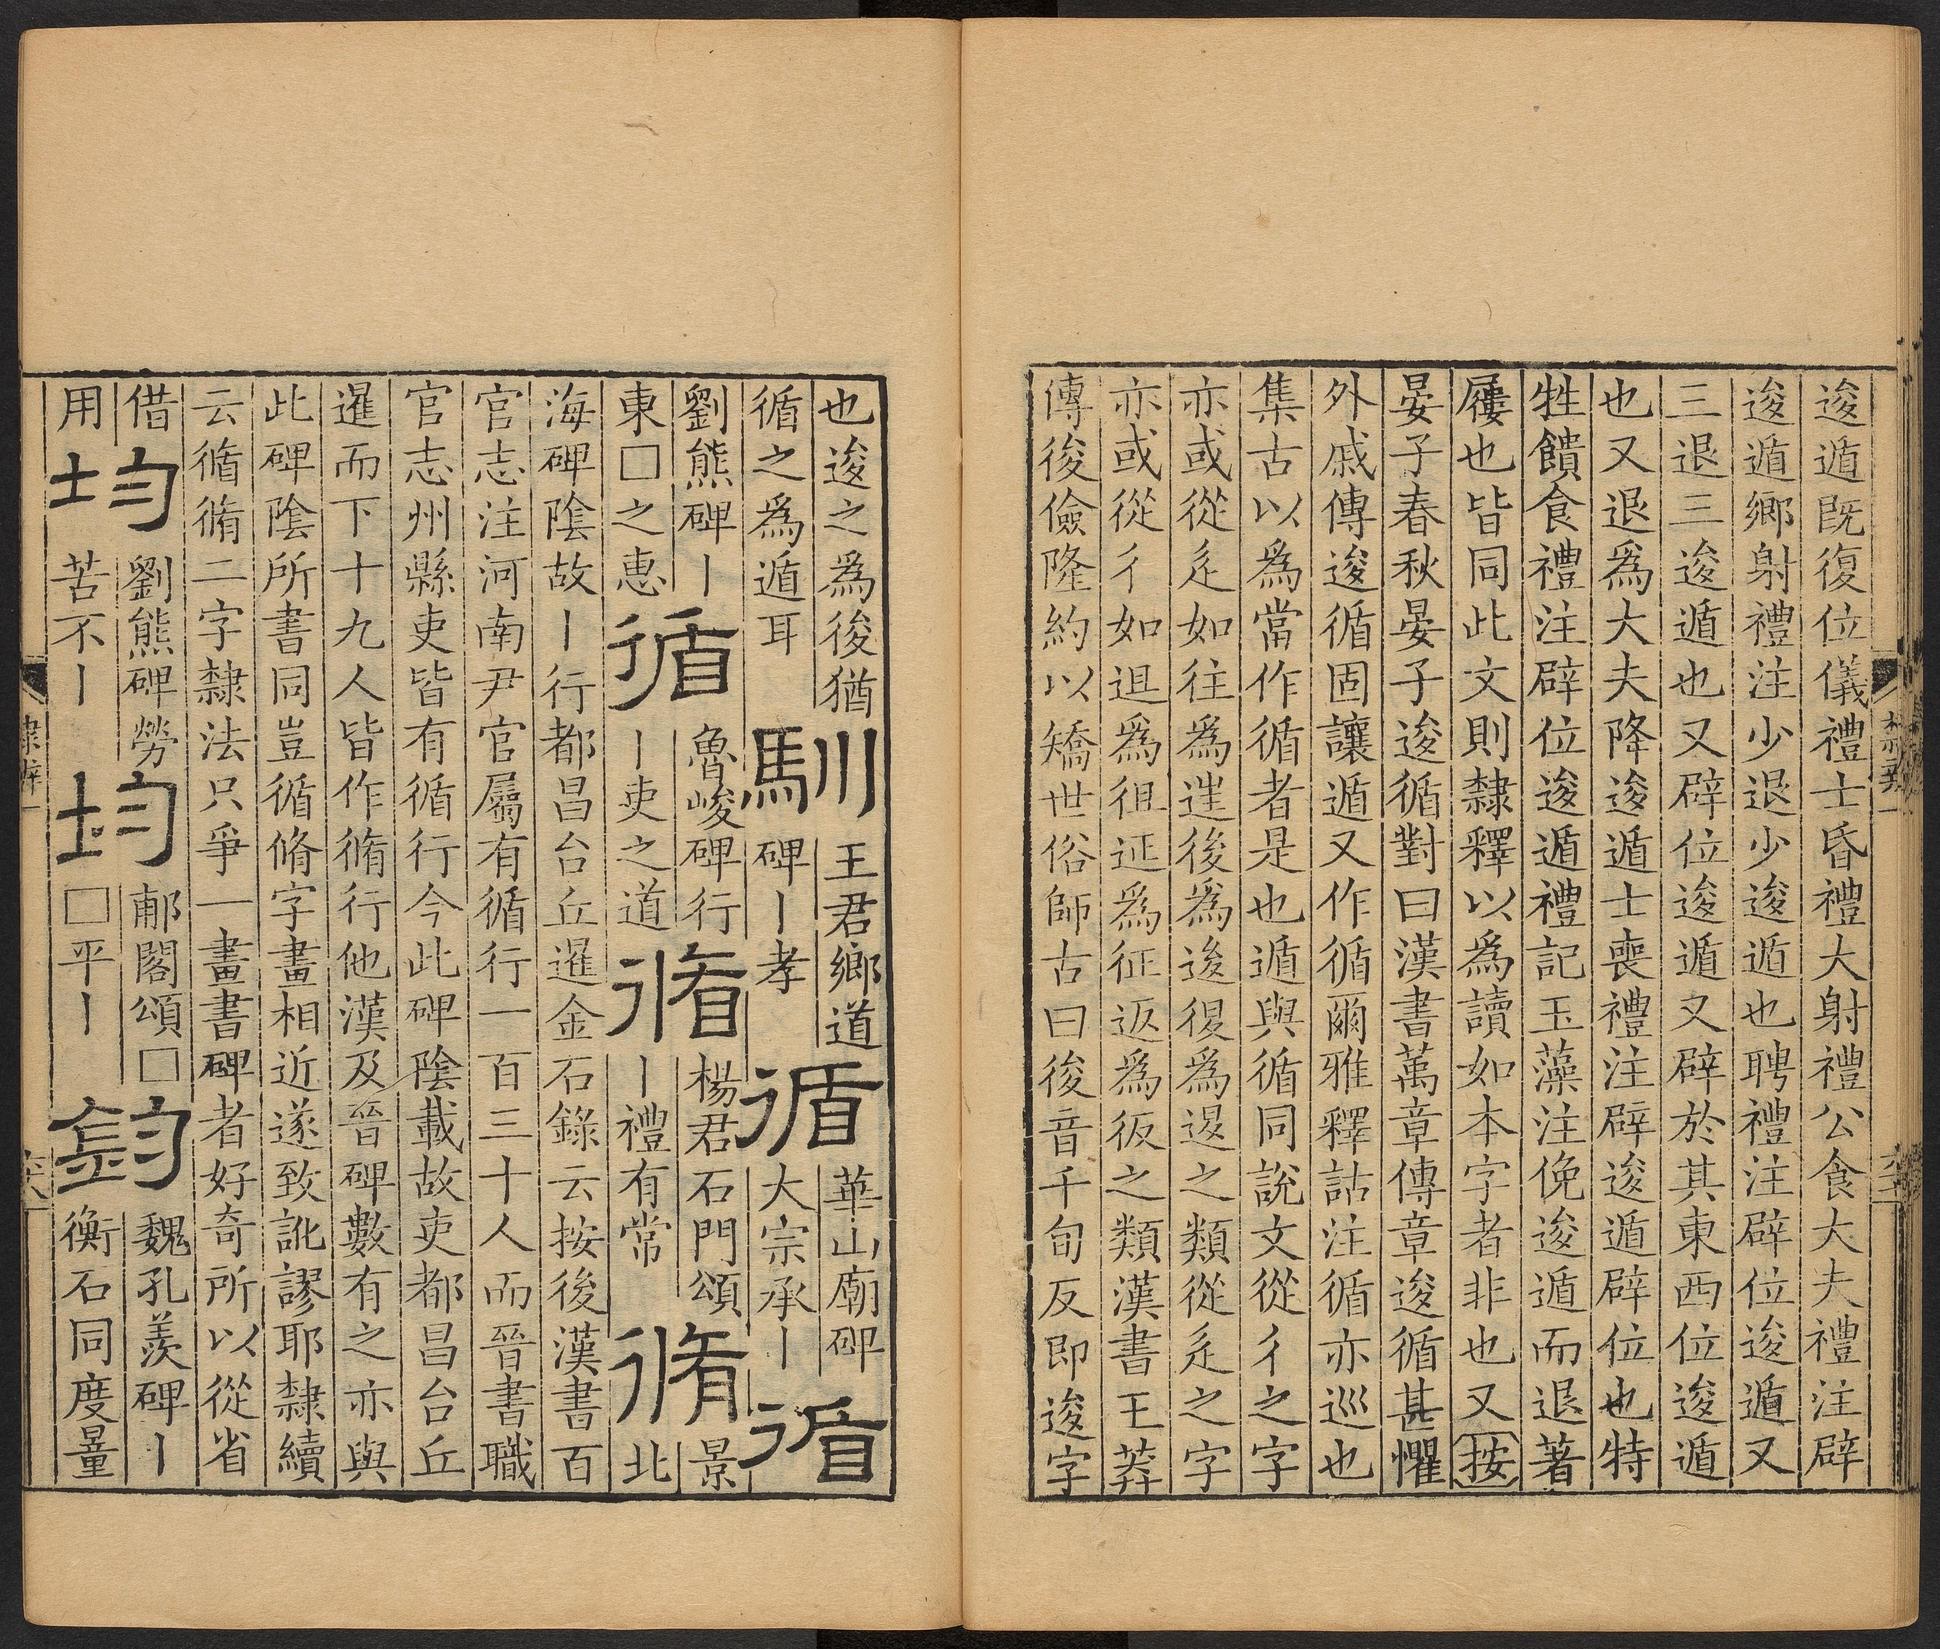 逡遁既復位儀禮士昏禮大射禮公食大夫禮注辟
逡遁鄉射禮注少退少逡遁也聘禮注辟位逡遁又
三退三逡遁也又辟位逡遁又辟於其東西位逡遁
也又退爲大夫降逡遁士喪禮注辟逡遁辟位也特
牲饋食禮注辟位逡遁禮記玉藻注俛逡遁而退著
屨也皆同此文則隸釋以爲讀如本字者非也又按
晏子春秋晏子逡循對曰漢書萬章傳章逡循甚懼
外戚傳逡循固讓遁又作循爾雅釋詁注循亦巡也
集古以爲當作循者是也遁與循同說文從彳之字
亦或從辵如往爲迬後爲逡復爲𨓤之類從辵之字
亦或從彳如退爲徂延爲征返爲彶之類漢書王莽
傳後儉隆約以矯世俗師古曰後音千旬反即逡字
也逡之爲後猶
循之爲遁耳
馴
王君鄉道
碑丨孝
遁
華山廟碑
大宗承丨
循
劉熊碑丨
東□之惠
循
魯峻碑行
丨吏之道
循
楊君石門頌
丨禮有常
脩
景北
海碑陰故丨行都昌台丘暹金石錄云按後漢書百
官志注河南尹官屬有循行一百三十人而晉書職
官志州縣吏皆有循行今此碑陰載故吏都昌台丘
暹而下十九人皆作脩行他漢及晉碑數有之亦與
此碑陰所書同豈循脩字畫相近遂致訛謬耶隸續
云循脩二字隸法只爭一畫書碑者好奇所以從省
借
用
均
劉熊碑勞
苦不丨
均
郙閣頌□
□平丨
鈞
魏孔羨碑丨
衡石同度量
隸辨一